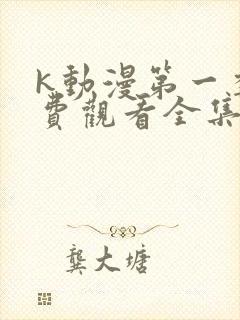 K動漫第一季
費觀看全集
龔大塘